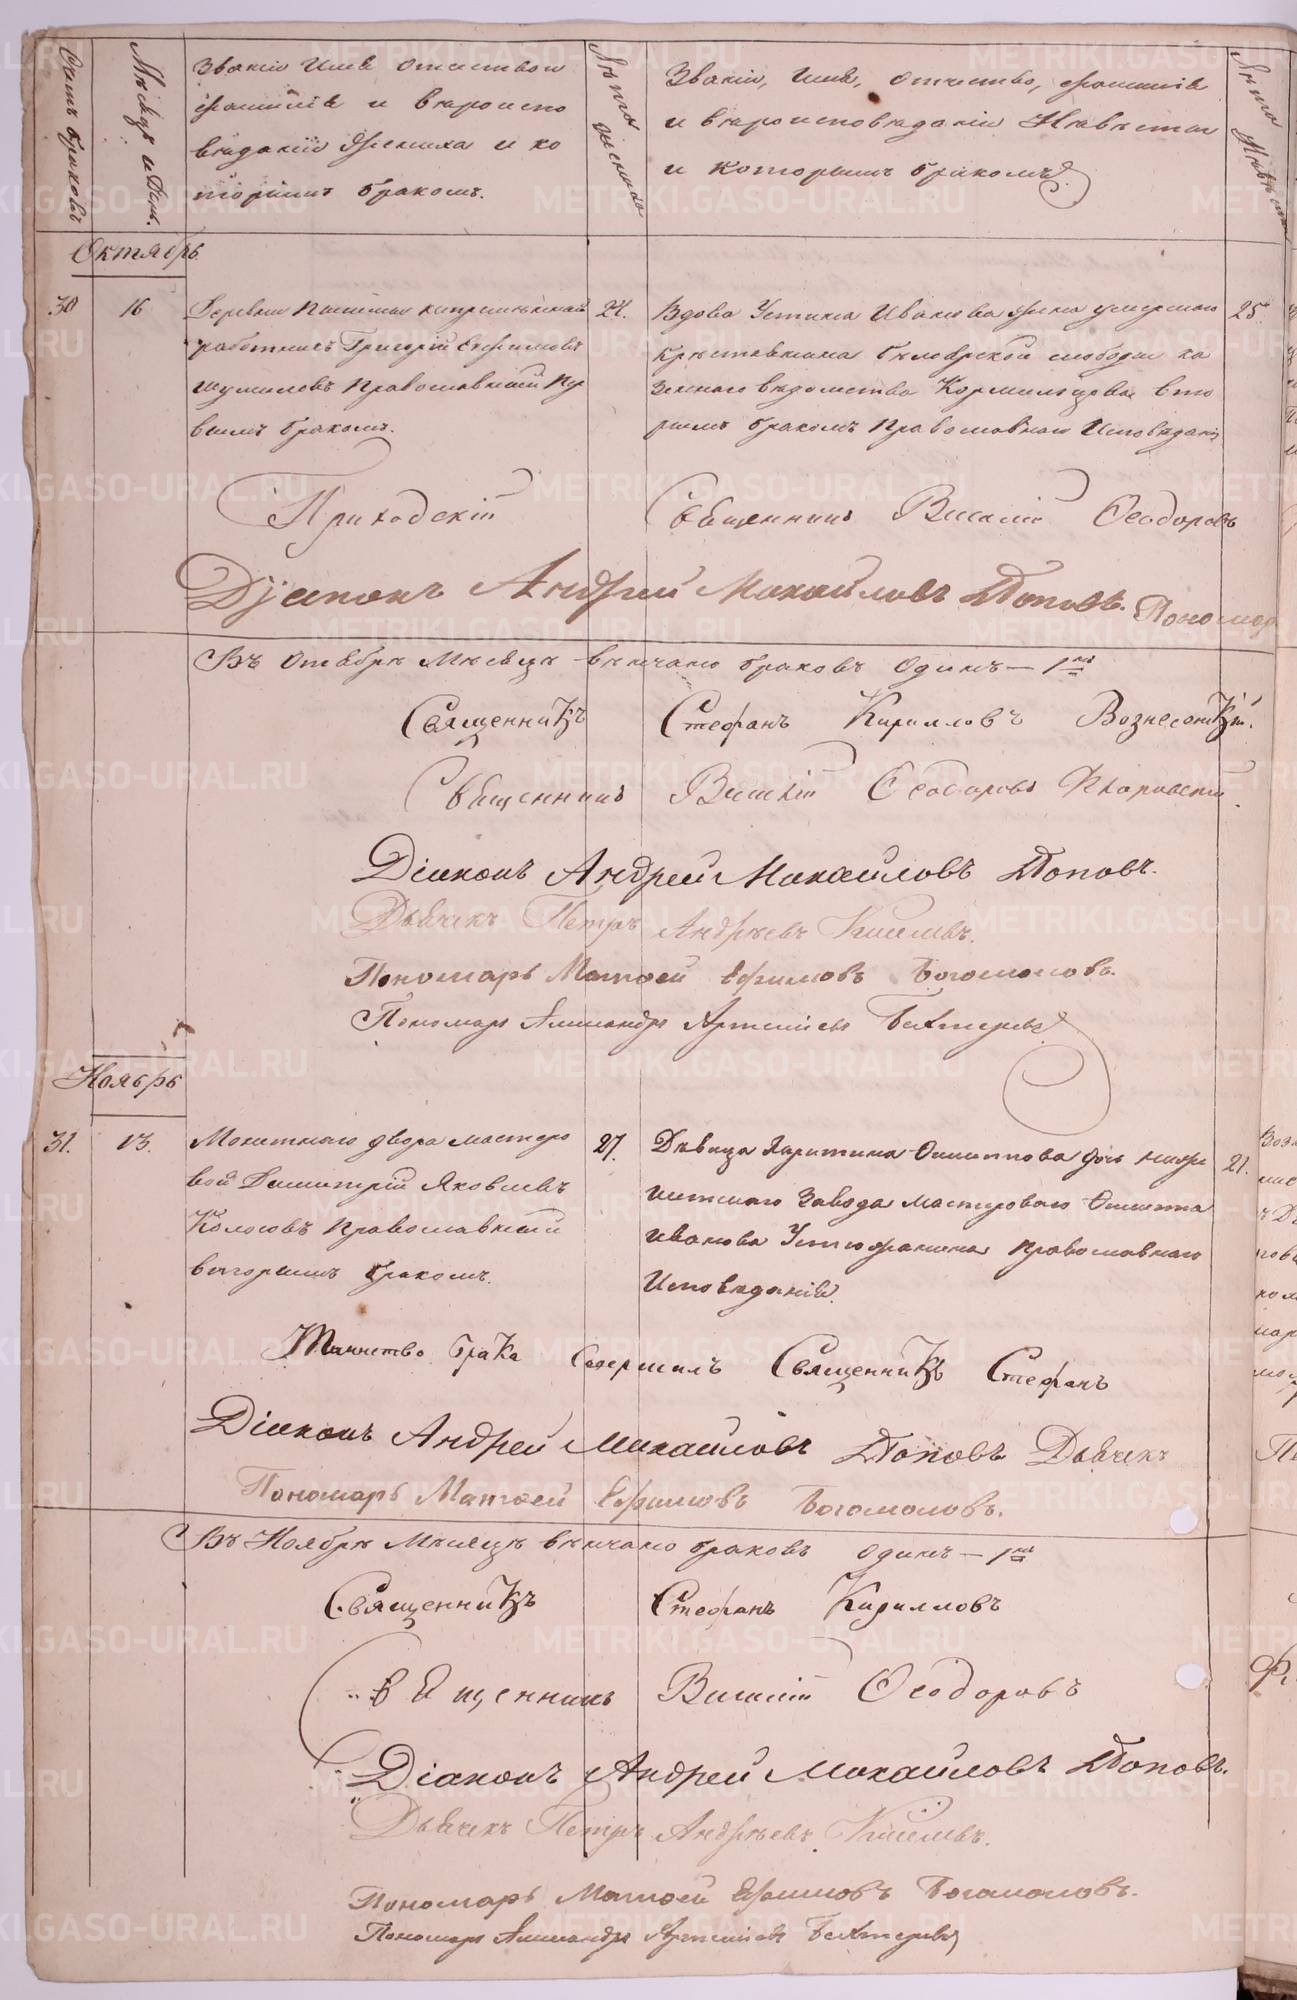 Счетъ браковъ
Мѣсяцъ и День.
Званіе Имя отчество и
фамилія и вѣроиспо
вѣданіе Жениха и ко
торымъ бракомъ.
Лѣта жениха
Званіе, Имя, отчество, фамилія
и вѣроисповѣданіе Невѣсты
и которымъ бракомъ
Лѣта Невѣсты
Октябрь
30 16
Деревни Пышмы
работникъ Григорій Ефимовъ
Шумиловъ Православный Пер
вымъ бракомъ.
24.
Вдова Устинья Иванова жена умершаго
Крестьянина Белоярской слободы ка
зеннаго ведомства Кормильцова вто
рымъ бракомъ Православнаго Исповеданія
25
Приходскій Священникъ Василій Ѳеодоровъ
Діаконъ Андрей Михайловъ Поповъ. Пономарь
Въ Октябрѣ Мѣсяцѣ вѣнчано браковъ одинъ — 1
Священникъ Стефанъ Кирилловъ Вознесенскій.
Священникъ Василій Ѳеодоровъ Флоровскій.
Діаконъ Андрей Михайловъ Поповъ.
Дьячекъ Петръ Андрѣевъ Киселевъ.
Пономарь Матѳей Ефимовъ Богомоловъ.
Пономарь Александръ Артемьевъ Бехтеревъ
Ноябрь
31. 13.
Монетнаго двора мастеро
вой Димитрій Яковлевъ
Колосовъ Православный
вторымъ бракомъ.
27.
Дѣвица Харитина Филиппова дочь нижне
исетскаго Завода мастероваго Филиппа
Иванова Устюжанина Православнаго
Исповѣданія.
21.
Таинство брака совершилъ Священникъ Стефанъ
Діаконъ Андрей Михайловъ Поповъ Дьячекъ
Пономарь Матѳей Ефимовъ Богомоловъ.
Въ Ноябрѣ Мѣсяцѣ вѣнчано браковъ одинъ — 1
Священникъ Стефанъ Кирилловъ
Священникъ Василій Ѳеодоровъ
Діаконъ Андрей Михайловъ Поповъ.
Дьячекъ Петръ Андрѣевъ Киселевъ.
Пономарь Матѳей Ефимовъ Богомоловъ.
Пономарь Александръ Артемьевъ Бехтеревъ
METRIKI.GASO-URAL.RU